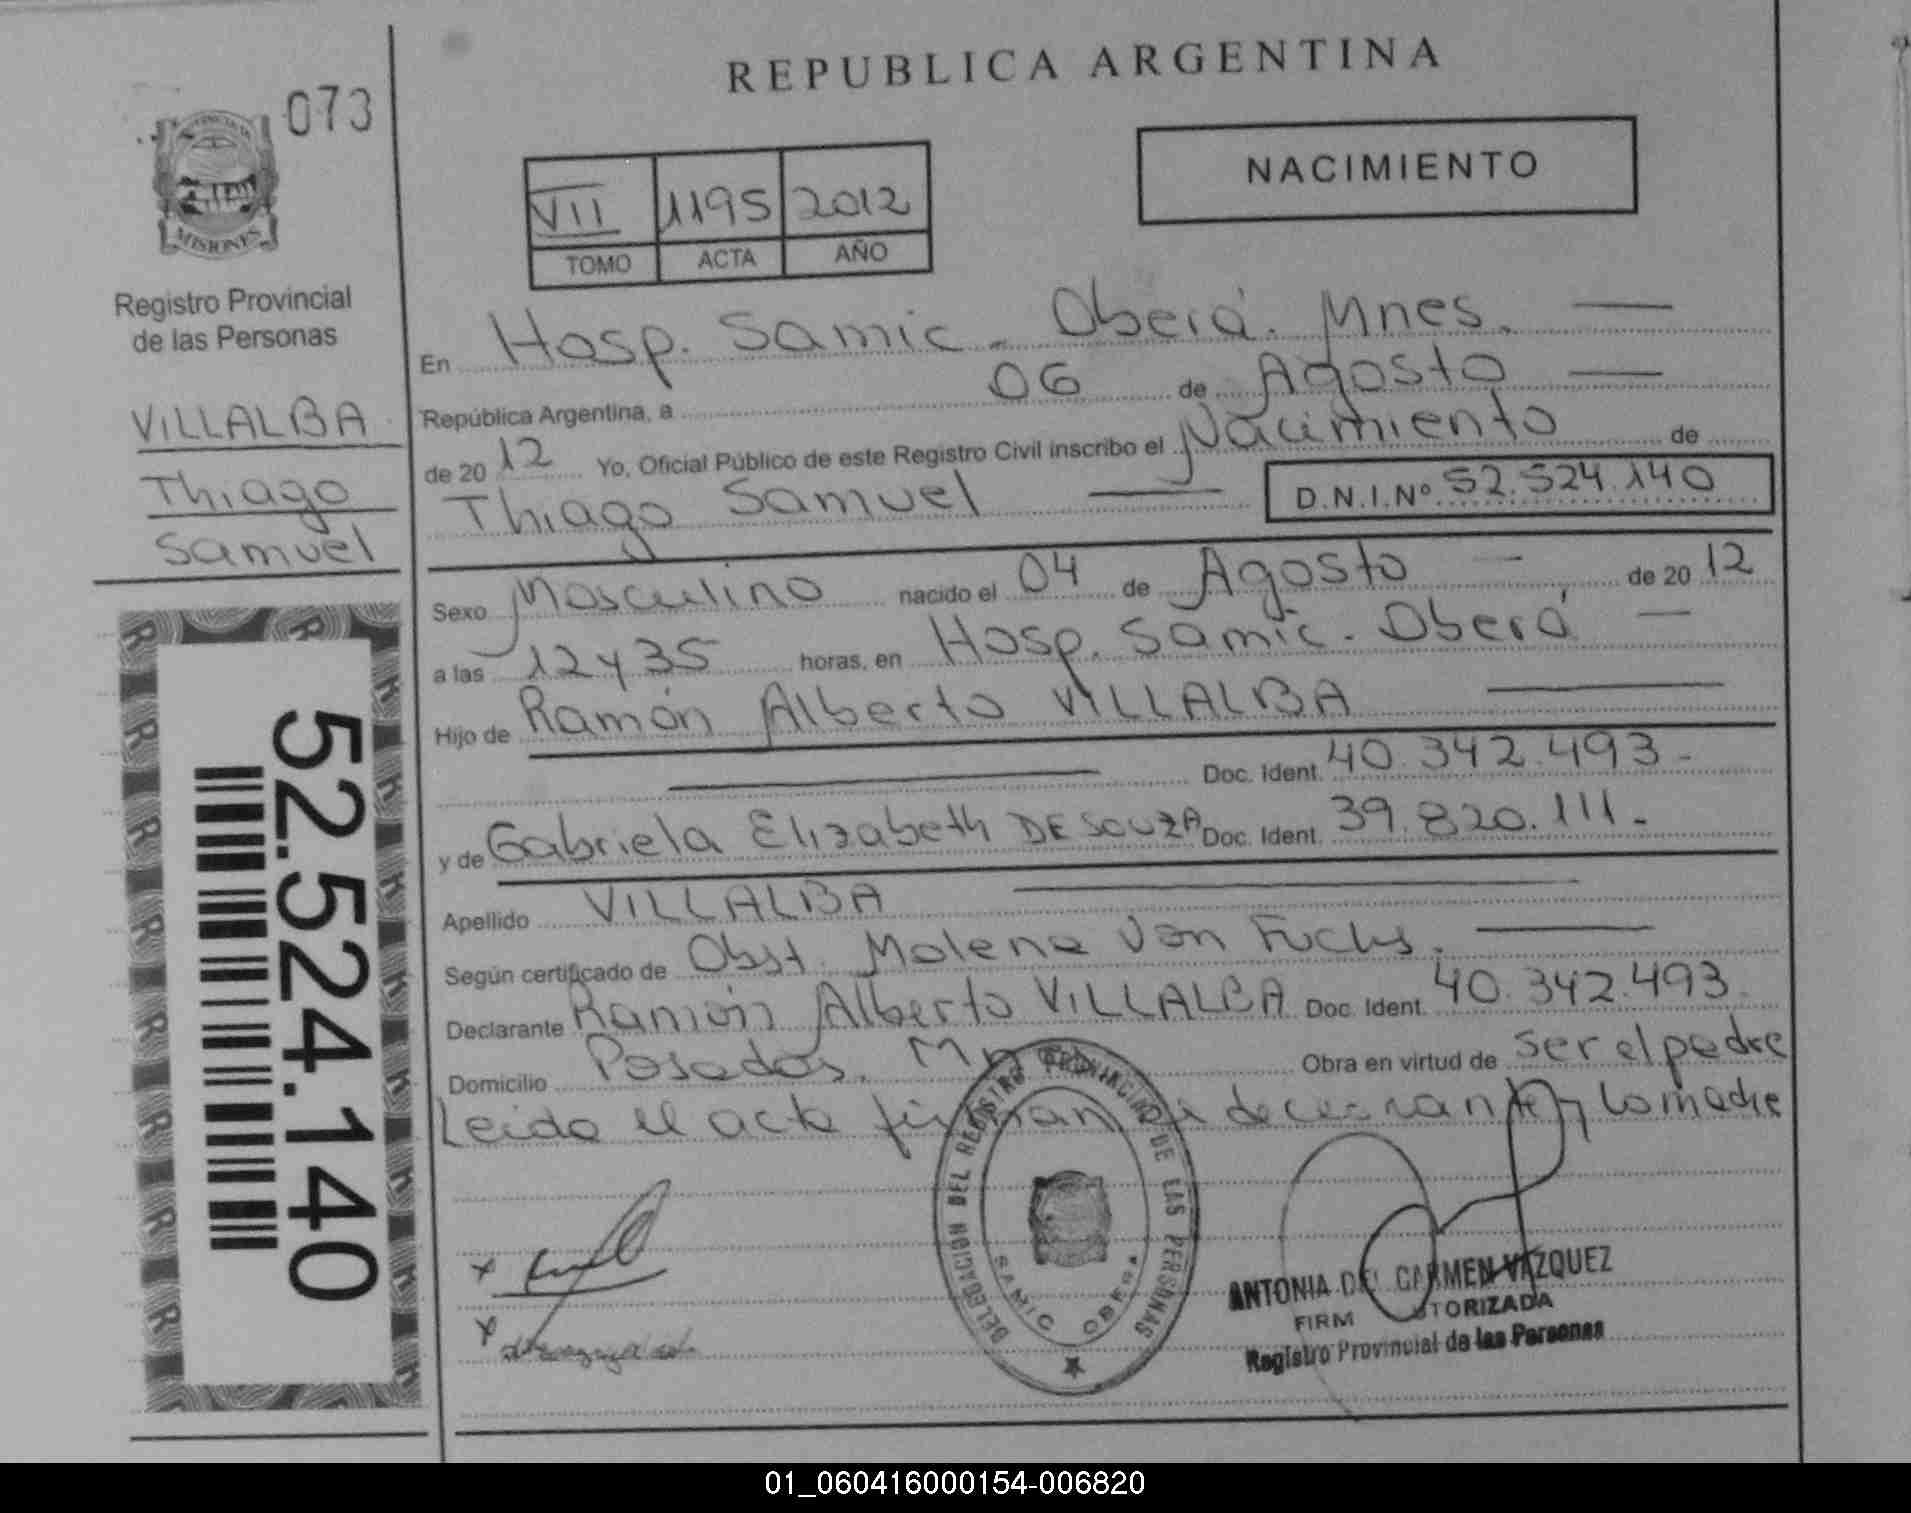 REPUBLICA ARGENTINA
073
PROVINCIA DE
MISIONES
Registro Provincial
de las Personas
VILLALBA
Thiago
Samuel
52.524.140
NACIMIENTO
VII 1195 2012
TOMO ACTA AÑO
En Hosp. Samic. Oberá. Mnes.
República Argentina, a 06 de Agosto
de 2012 Yo, Oficial Público de este Registro Civil inscribo el Nacimiento de
Thiago Samuel D.N.I.Nº 52.524.140
Sexo Masculino nacido el 04 de Agosto de 2012
a las 12 y 35 horas, en Hosp. Samic. Oberá
Hijo de Ramón Alberto VILLALBA
Doc. Ident. 40.342.493.-
y de Gabriela Elizabeth DE SOUZA Doc. Ident. 39.820.111.-
Apellido VILLALBA
Según certificado de Obst. Malena Von Fuchs.
Declarante Ramón Alberto VILLALBA Doc. Ident. 40.342.493.
Domicilio Posadas. Mn Obra en virtud de ser el padre
Leida el acta firman declarante y la madre
DELEGACION DEL REGISTRO PROVINCIAL DE LAS PERSONAS
SAMIC OBERA
ANTONIA DEL CARMEN VAZQUEZ
FIRM UTORIZADA
Registro Provincial de las Personas
01_060416000154-006820